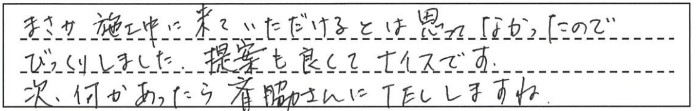 まさか施工中に来ていただけるとは思ってなかったので
びっくりしました。提案も良くてナイスです。
次、何かあったら斉脇さんにTELしますね。